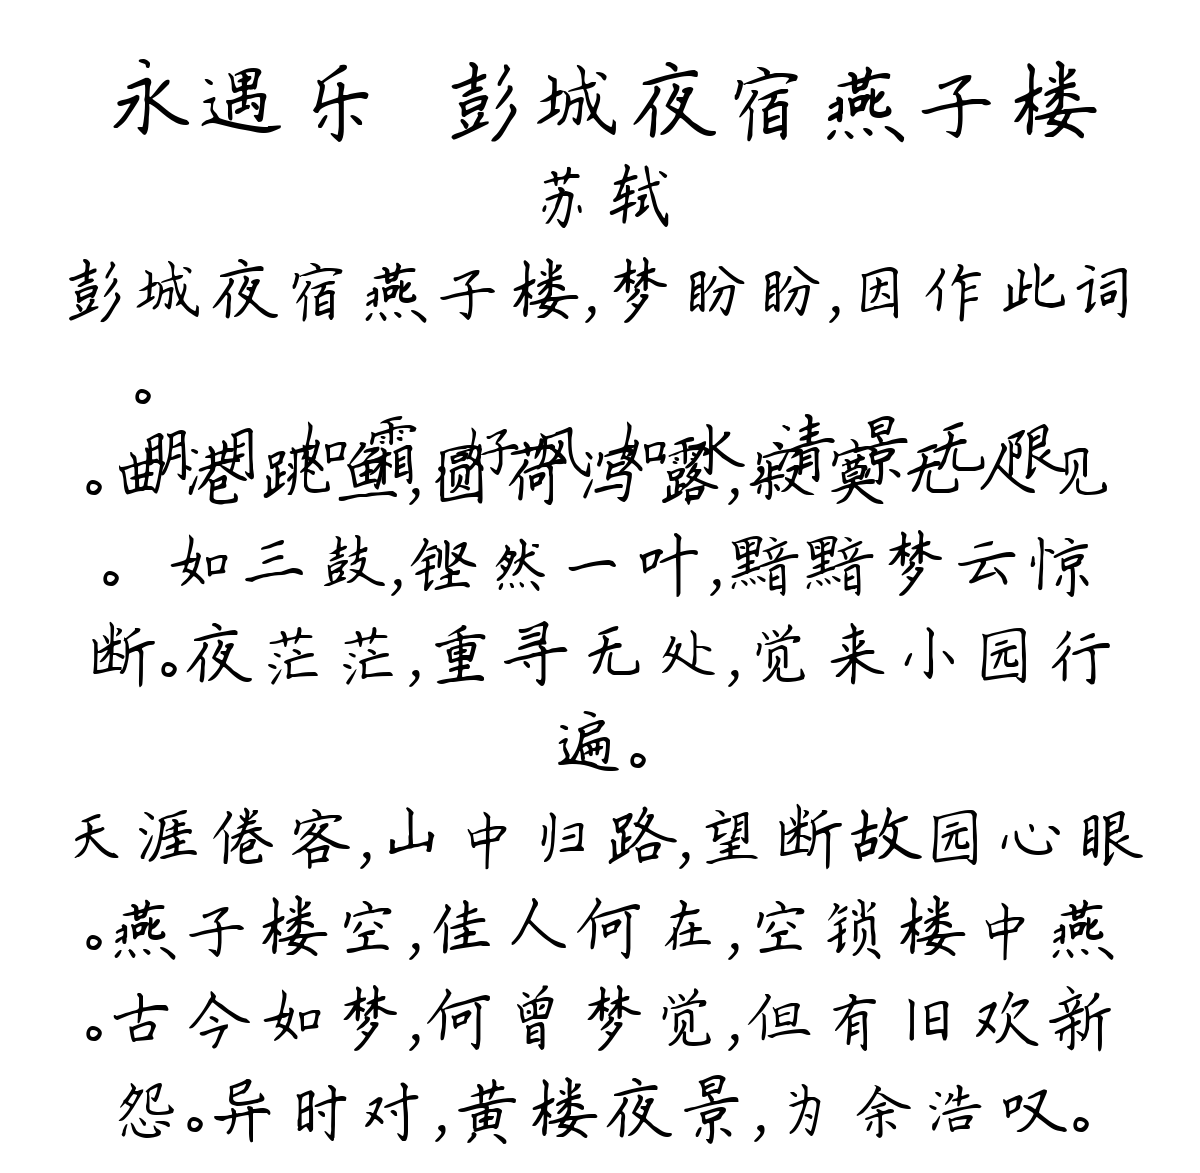 永遇乐 彭城夜宿燕子楼
苏轼
彭城夜宿燕子楼,梦盼盼,因作此词
。
明月如霜,好风如水,清景无限
。曲港跳鱼,圆荷泻露,寂寞无人见
。如三鼓,铿然一叶,黯黯梦云惊
断。夜茫茫,重寻无处,觉来小园行
遍。
天涯倦客,山中归路,望断故园心眼
。燕子楼空,佳人何在,空锁楼中燕
。古今如梦,何曾梦觉,但有旧欢新
怨。异时对,黄楼夜景,为余浩叹。